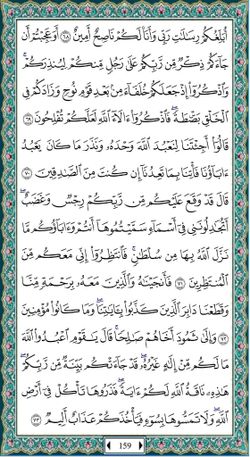 أُبَلِّغُكُمْ رِسَٰلَٰتِ رَبِّى وَأَنَا۠ لَكُمْ نَاصِحٌ أَمِينٌ ٦٨ أَوَعَجِبْتُمْ أَن
جَآءَكُمْ ذِكْرٌ مِّن رَّبِّكُمْ عَلَىٰ رَجُلٍ مِّنكُمْ لِيُنذِرَكُمْ ۚ
وَٱذْكُرُوٓا۟ إِذْ جَعَلَكُمْ خُلَفَآءَ مِنۢ بَعْدِ قَوْمِ نُوحٍ وَزَادَكُمْ فِى
ٱلْخَلْقِ بَصْۜطَةً ۖ فَٱذْكُرُوٓا۟ ءَالَآءَ ٱللَّهِ لَعَلَّكُمْ تُفْلِحُونَ ٦٩
قَالُوٓا۟ أَجِئْتَنَا لِنَعْبُدَ ٱللَّهَ وَحْدَهُۥ وَنَذَرَ مَا كَانَ يَعْبُدُ
ءَابَآؤُنَا ۖ فَأْتِنَا بِمَا تَعِدُنَآ إِن كُنتَ مِنَ ٱلصَّٰدِقِينَ ٧٠
قَالَ قَدْ وَقَعَ عَلَيْكُم مِّن رَّبِّكُمْ رِجْسٌ وَغَضَبٌ ۖ
أَتُجَٰدِلُونَنِى فِىٓ أَسْمَآءٍ سَمَّيْتُمُوهَآ أَنتُمْ وَءَابَآؤُكُم مَّا
نَزَّلَ ٱللَّهُ بِهَا مِن سُلْطَٰنٍ ۚ فَٱنتَظِرُوٓا۟ إِنِّى مَعَكُم مِّنَ
ٱلْمُنتَظِرِينَ ٧١ فَأَنجَيْنَٰهُ وَٱلَّذِينَ مَعَهُۥ بِرَحْمَةٍ مِّنَّا
وَقَطَعْنَا دَابِرَ ٱلَّذِينَ كَذَّبُوا۟ بِـَٔايَٰتِنَا ۖ وَمَا كَانُوا۟ مُؤْمِنِينَ
٧٢ وَإِلَىٰ ثَمُودَ أَخَاهُمْ صَٰلِحًا ۗ قَالَ يَٰقَوْمِ ٱعْبُدُوا۟ ٱللَّهَ
مَا لَكُم مِّنْ إِلَٰهٍ غَيْرُهُۥ ۖ قَدْ جَآءَتْكُم بَيِّنَةٌ مِّن رَّبِّكُمْ ۖ
هَٰذِهِۦ نَاقَةُ ٱللَّهِ لَكُمْ ءَايَةً ۖ فَذَرُوهَا تَأْكُلْ فِىٓ أَرْضِ
ٱللَّهِ ۖ وَلَا تَمَسُّوهَا بِسُوٓءٍ فَيَأْخُذَكُمْ عَذَابٌ أَلِيمٌ ٧٣
159